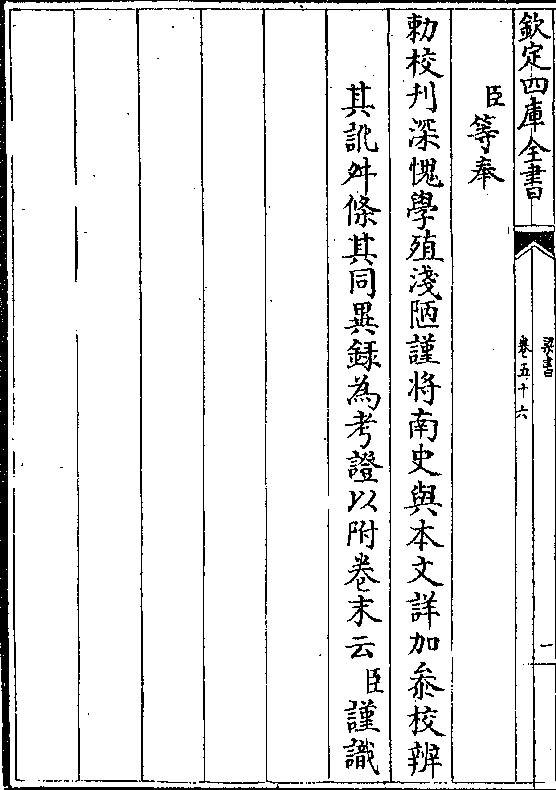 欽定四庫全書
梁書
卷五十六
二
臣等奉
勅校刋深愧學殖淺陋謹將南史與本文詳加叅校辨
其訛舛條其同異録為考證以附卷末云臣謹識